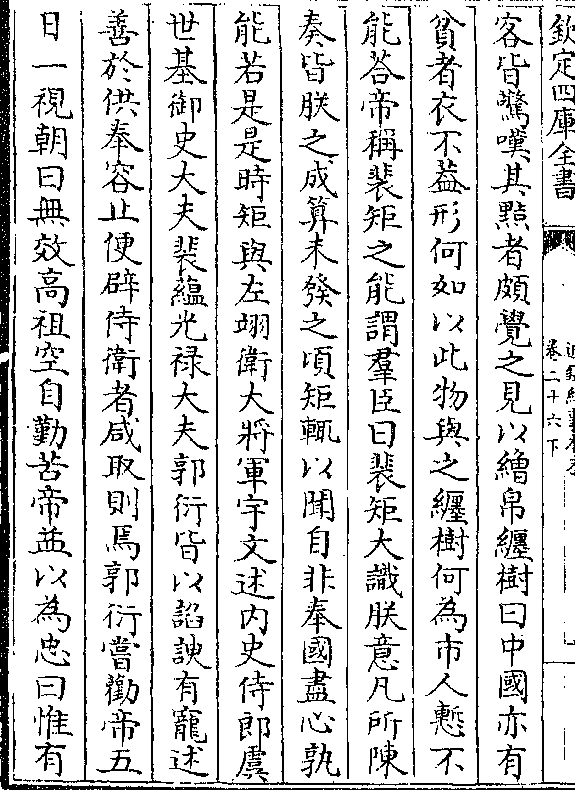 欽定四庫全書
卷二十六下
客皆驚嘆其黠者頗覺之見以繒帛纒樹曰中國亦有
貧者衣不葢形何如以此物與之纒樹何為市人慙不
能荅帝稱裴矩之能謂羣臣曰裴矩大識朕意凡所陳
奏皆朕之成算未發之頃矩輒以聞自非奉國盡心孰
能若是是時矩與左翊衛大將軍宇文述内史侍郎虞
世基御史大夫裴蘊光禄大夫郭衍皆以諂諛有寵述
善於供奉容止便辟侍衛者咸取則焉郭衍嘗勸帝五
日一視朝曰無效高祖空自勤苦帝益以為忠曰惟有